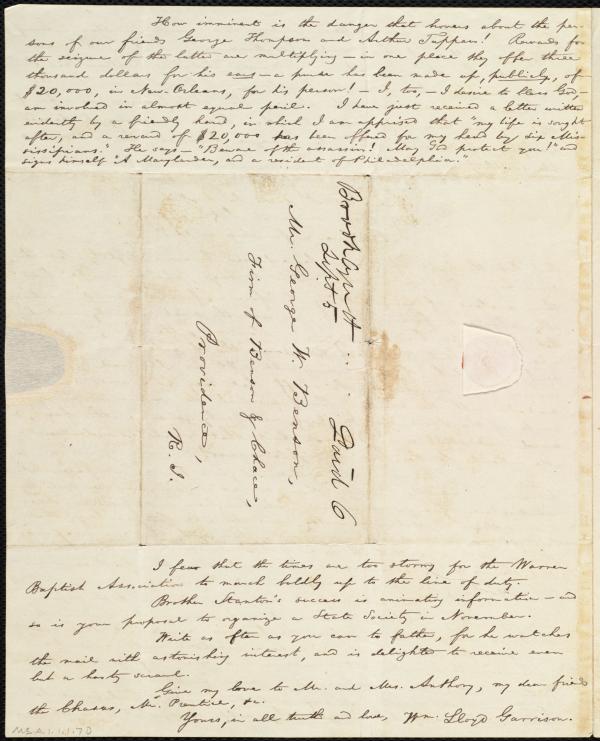 How imminent is the danger that hovers about the per-
sons of our friends George Thompson and Arthur Tappan! Rewards for
the seizure of the latter are multiplying — in one place they offer three
thousand dollars for his ears — a purse has been made up, publicly, of
$20,000, in New-Orleans, for his person! — I, too, — I desire to bless God, —
am involved in almost equal peril. I have just received a letter written
evidently by a friendly hand, in which I am apprised that "my life is sought
after, and a reward of $20,000 has been offered for my head by six Mis-
sissippians." He says — "Beware of the assassin! May God protect you!" and
signs himself "A Marylander, and a resident of Philadelphia."
Brooklyn Ct
Sept 5
Paid 6
Mr. George W. Benson,
Firm of Benson & Chace,
Providence,
R. I.
I fear that the times are too stormy for the Warren
Baptist Association to march boldly up to the line of duty.
Brother Stanton's success is animating information — and
so is your proposal to organize a State Society in November.
Write as often as you can to father, for he watches
the mail with astonishing interest, and is delighted to receive even
but a hasty scrawl.
Give my love to Mr. and Mrs. Anthony, my dear friends
the Chases, Mr. Prentice, &c.
Yours, in all truth and love, Wm. Lloyd Garrison.